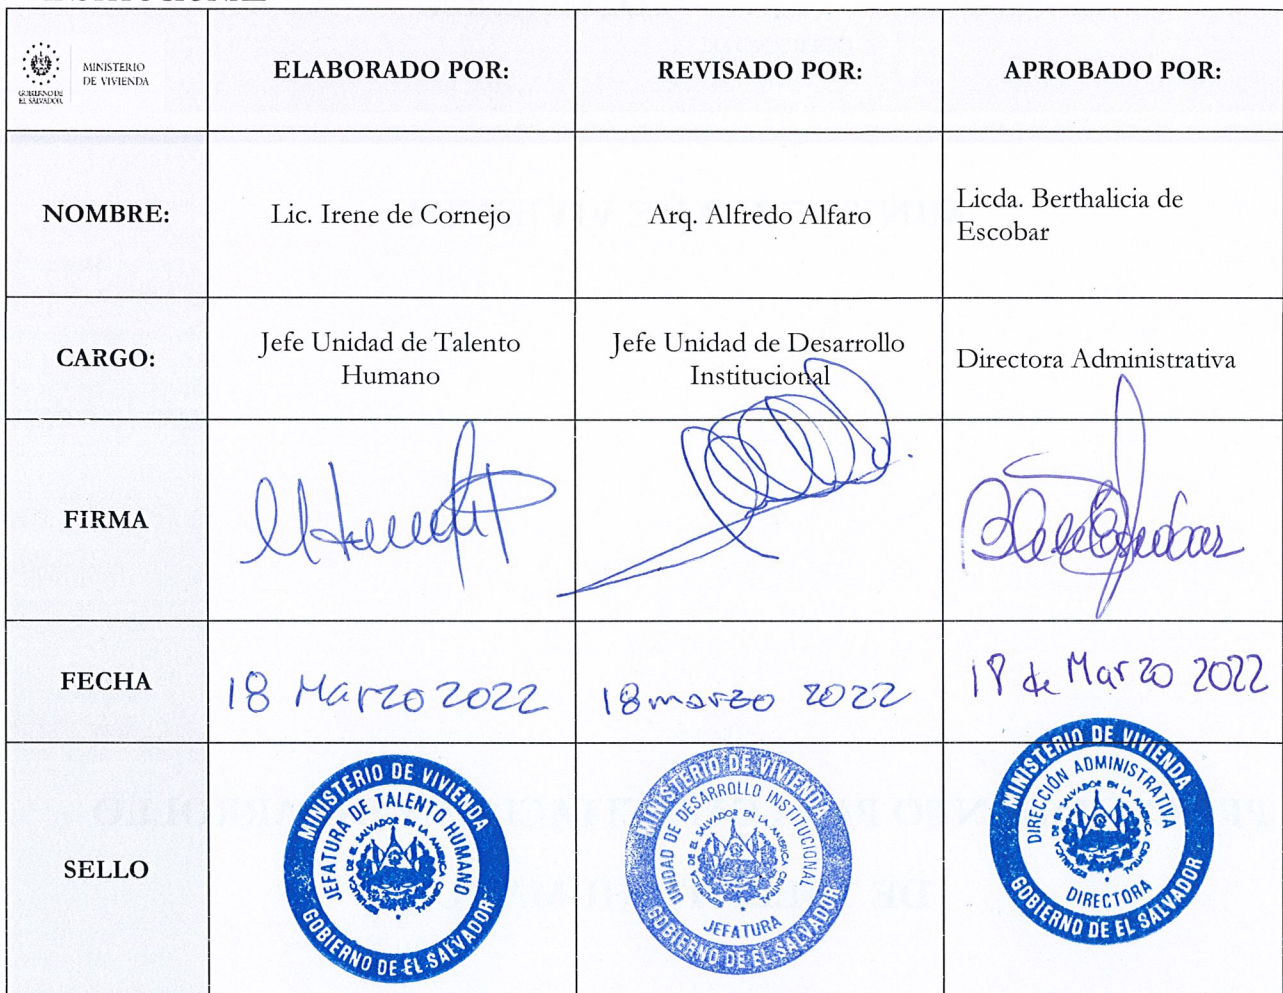 MINISTERIO
DE VIVIENDA
GOBIERNO DE
EL SALVADOR
ELABORADO POR:
REVISADO POR:
APROBADO POR:
NOMBRE:
Lic. Irene de Cornejo
Arq. Alfredo Alfaro
Licda. Berthalicia de
Escobar
CARGO:
Jefe Unidad de Talento
Humano
Jefe Unidad de Desarrollo
Institucional
Directora Administrativa
FIRMA
FECHA
18 Marzo 2022
18 marzo 2022
18 de Marzo 2022
SELLO
MINISTERIO DE VIVIENDA
JEFATURA DE TALENTO HUMANO
REPUBLICA DE EL SALVADOR EN LA AMERICA CENTRAL
GOBIERNO DE EL SALVADOR
MINISTERIO DE VIVIENDA
UNIDAD DE DESARROLLO INSTITUCIONAL
REPUBLICA DE EL SALVADOR EN LA AMERICA CENTRAL
JEFATURA
GOBIERNO DE EL SALVADOR
MINISTERIO DE VIVIENDA
DIRECCIÓN ADMINISTRATIVA
REPUBLICA DE EL SALVADOR EN LA AMERICA CENTRAL
DIRECTORA
GOBIERNO DE EL SALVADOR